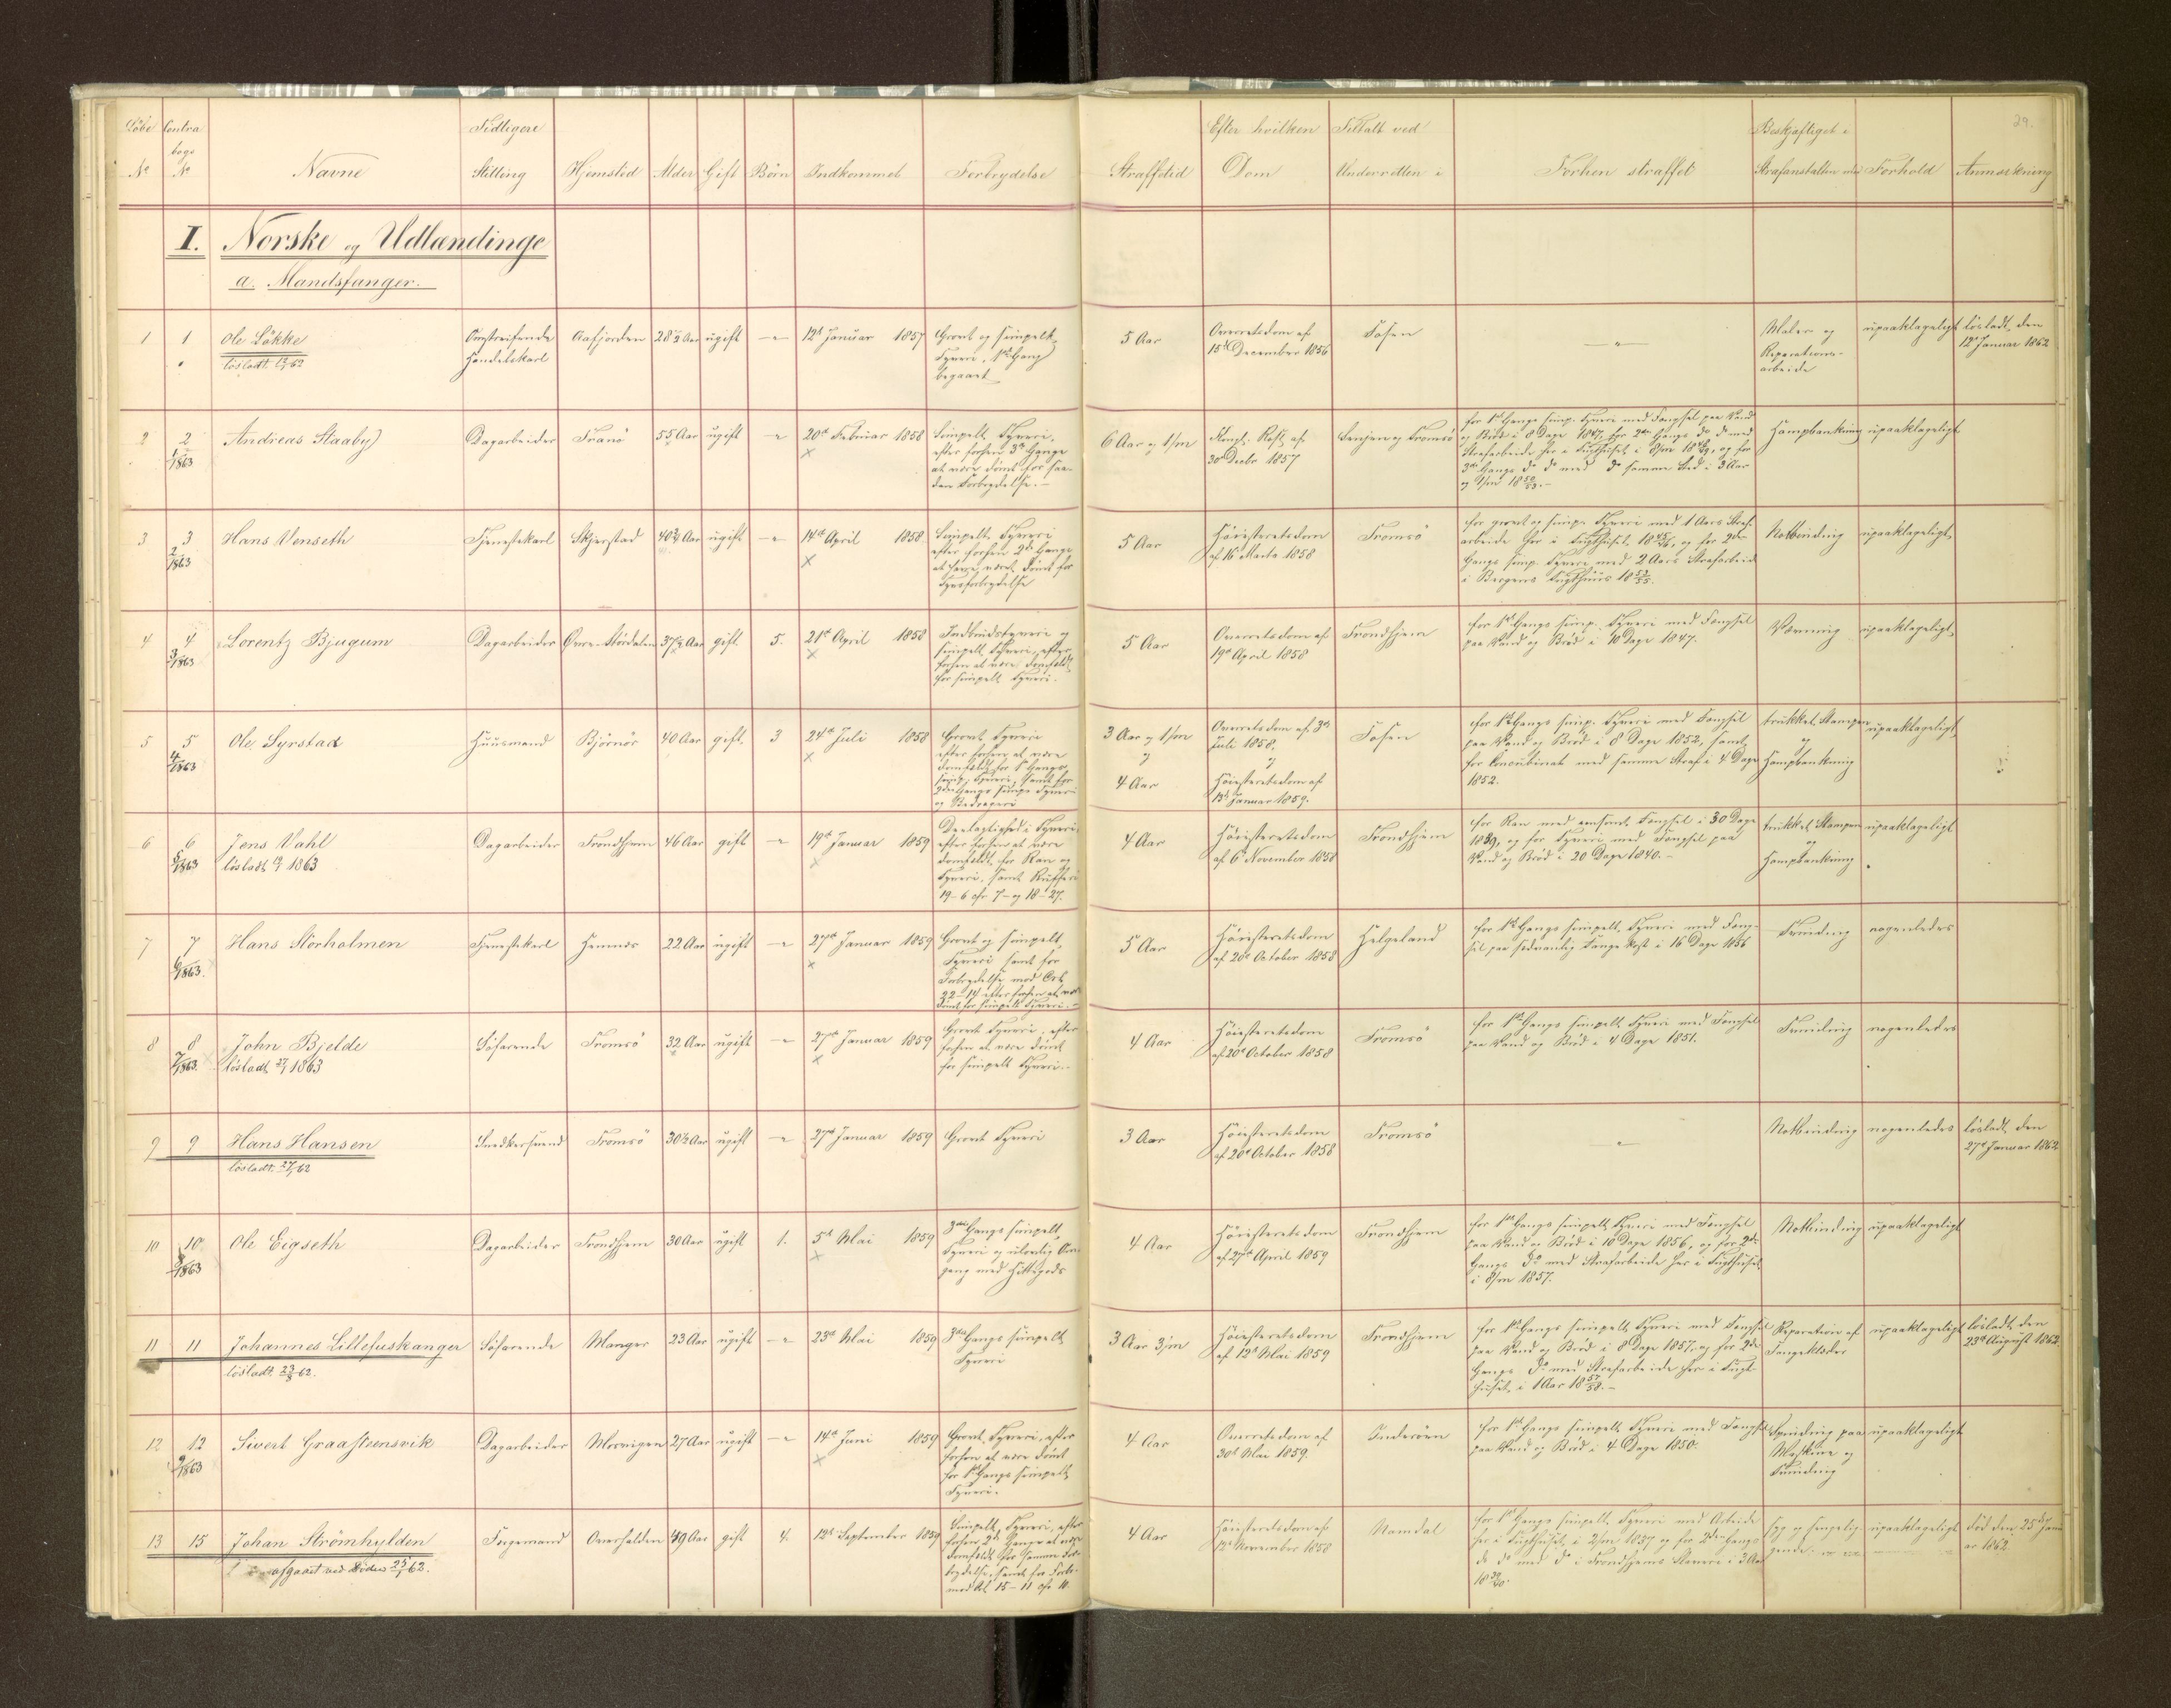 Löbe Contra Tidligere Efter hvilken Tiltalt ved Beskjæftiget i 29.
bogs
No No Navne Stilling Hjemsted Alder Gift Börn Indkommet Forbrydelse Straffetid Dom Underretten i Forhen straffet Strafanstalten med Forhold Anmærkning
I. Norske og Udlændinge
a. Mandsfanger.
1 1 Ole Løkke Omstreifende Aafjorden 28½ Aar ugift 12te Januar 1857 Grovt og simpelt 5 Aar Overretsdom af Fosen Maler og upaaklageligt lösladt den
lösladt 12/1 62 Handelskarl Tyveri, 1ste Gang 15de December 1856 Reparations- 12te Januar 1862
begaaet arbeide
2 2 Andreas Staaby Dagarbeider Tranö 55 Aar ugift 20de Februar 1858 Simpelt Tyveri, 6 Aar og 1/m Kongl. Resl. af Senjen og Tromsö for 1ste Gangs simp. Tyveri med Fængsel paa Vand Hampbankning upaaklageligt
1/1863 efter forhen 3de Gange 30te Decbr 1857 og Bröd i 8 Dage 1847, for 2den Gangs do do med
at være dömt for saa- Strafarbeide her i Tugthuset i 8/m 18 og for
dan Forbrydelse. 3die Gangs do do med do samme Sted i 3 Aar
og 1/m 18
3 3 Hans Venseth Tjenestekarl Skjerstad 40¾ Aar ugift 14de April 1858 Simpelt Tyveri 5 Aar Höiesteretsdom Tromsö for grovt og simp. Tyveri med 1 Aars Straf- Notbinding upaaklageligt
2/1863 efter forhen 2de Gange af 16 Marts 1858 arbeide her i Tugthuset 18 og for 2den
at have været dömt for Gangs simp. Tyveri med 2 Aars Strafarbeide
Tyvsforbrydelse i Bergens Tugthuus 18 53/55.
4 4 Lorentz Bjugum Dagarbeider Övre-Stördalen 37½ Aar gift 5. 21de April 1858 Indbrudstyveri og 5 Aar Overretsdom af Trondhjem for 1ste Gangs simp. Tyveri med Fængsel Vævning upaaklageligt
3/1863 simpelt Tyveri, efter 19de April 1858 paa Vand og Bröd i 10 Dage 1847.
forhen at være domfældt
for simpelt Tyveri.
5 5 Ole Syrstad Huusmand Björnör 40 Aar gift 3 24de Juli 1858 Grovt Tyveri 3 Aar og 1/m Overretsdom af 3die Fosen for 1ste Gangs simp. Tyveri med Fængsel trukket Stampen upaaklageligt
4/1863 efter forhen at være og Juli 1858. paa Vand og Bröd i 8 Dage 1852, samt og
domfældt for 1ste Gangs 4 Aar og for Concubinat med samme Straf i 4 Dage Hampbankning
simp. Tyveri, samt for Höiesteretsdom af 1852.
2den Gangs simpe Tyveri 13de Januar 1859.
og Bedrageri
6 6 Jens Vahl Dagarbeider Trondhjem 46 Aar gift 19de Januar 1859 Deelagtighed i Tyveri 4 Aar Höiesteretsdom Trondhjem for Ran med eensomt Fængsel i 30 Dage trukket Stampen upaaklageligt
5/1863 lösladt 19/1 1863 efter forhen at være af 6te November 1858 1839, og for Tyveri med Fængsel paa og
domfældt for Ran og Vand og Bröd i 20 Dage 1840. Hampbankning
Tyveri, samt
19-6 cfr 7- og 18-27.
7 7 Hans Storholmen Tjenestekarl Hemnæs 22 Aar ugift 27de Januar 1859 Grovt og simpelt 5 Aar Höiesteretsdom Helgeland for 1ste Gangs simpelt Tyveri med Fæng- Tvinding nogenledes
6/1863. Tyveri samt for af 20de October 1858 sel paa sædvanlig Fange Kost i 16 Dage 1856
Forbrydelse mod Crl.
22-14 efter forhen at være
dömt for simpelt Tyveri.
8 8 John Bjelde Söfarende Tromsö 32 Aar ugift 27de Januar 1859 Grovt Tyveri, efter 4 Aar Höiesteretsdom Tromsö for 1ste Gangs simpelt Tyveri med Fængsel Tvinding nogenledes
7/1863. lösladt 27/1 1863 forhen at være dömt af 20de October 1858 paa Vand og Bröd i 4 Dage 1851.
for simpelt Tyveri.
9 9 Hans Hansen Snedkersvend Tromsö 30½ Aar ugift 27de Januar 1859 Grovt Tyveri 3 Aar Höiesteretsdom Tromsö Notbinding nogenledes lösladt den
lösladt 27/1 62 af 20de October 1858 27de Januar 1862
10 10 Ole Eigseth Dagarbeider Trondhjem 30 Aar ugift 1. 5te Mai 1859 3die Gangs simpelt 4 Aar Höiesteretsdom Trondhjem for 1ste Gangs simpelt Tyveri med Fængsel Notbinding upaaklageligt
8/1863 Tyveri og ulovlig Om- af 27de April 1859 paa Vand og Bröd i 10 Dage 1856, og for 2den
gang med Hittegods Gangs do med Strafarbeide her i Tugthuset
i 8/m 1857.
11 11 Johannes Lillefuskanger Söfarende Manger 23 Aar ugift 23de Mai 1859 3die Gangs simpelt 3 Aar 3/m Höiesteretsdom Trondhjem for 1ste Gangs simpelt Tyveri med Fængsel Reparation af upaaklageligt lösladt den
lösladt 23/8 62. Tyveri af 12te Mai 1859 paa Vand og Bröd i 8 Dage 1857, og for 2den Fangeklæder 23de August 1862.
Gangs do med Strafarbeide her i Tugt-
huset i 1 Aar 18 57/58.
12 12 Sivert Graasteensvik Dagarbeider Mosvigen 27 Aar ugift 14de Juni 1859 Grovt Tyveri, efter 4 Aar Overretsdom af Inderöen for 1ste Gangs simpelt Tyveri med Fængsel Spinding paa upaaklageligt
9/1863 forhen at være dömt 30te Mai 1859. paa Vand og Bröd i 4 Dage 1850. Maskine og
for 1ste Gangs simpelt Tvinding
Tyveri.
13 15 Johan Strömhylden Overhalden 49 Aar gift 4. 12te September 1859 Simpelt Tyveri, efter 4 Aar Höiesteretsdom af Namdal for 1ste Gangs simpelt Tyveri med Arbeide Syg og upaaklageligt död den 25de Janu-
afgaaet ved Döden 25/1 62. forhen 2de Gange at være 12te November 1858 her i Tugthuset i 2/m 1837 og for 2den Gangs ar 1862
domfældt for samme For- do do med do i Trondhjems Slaveri i 3 Aar
brydelse, samt for Forbr. 18
mod Crl 15-11 cfr 11.